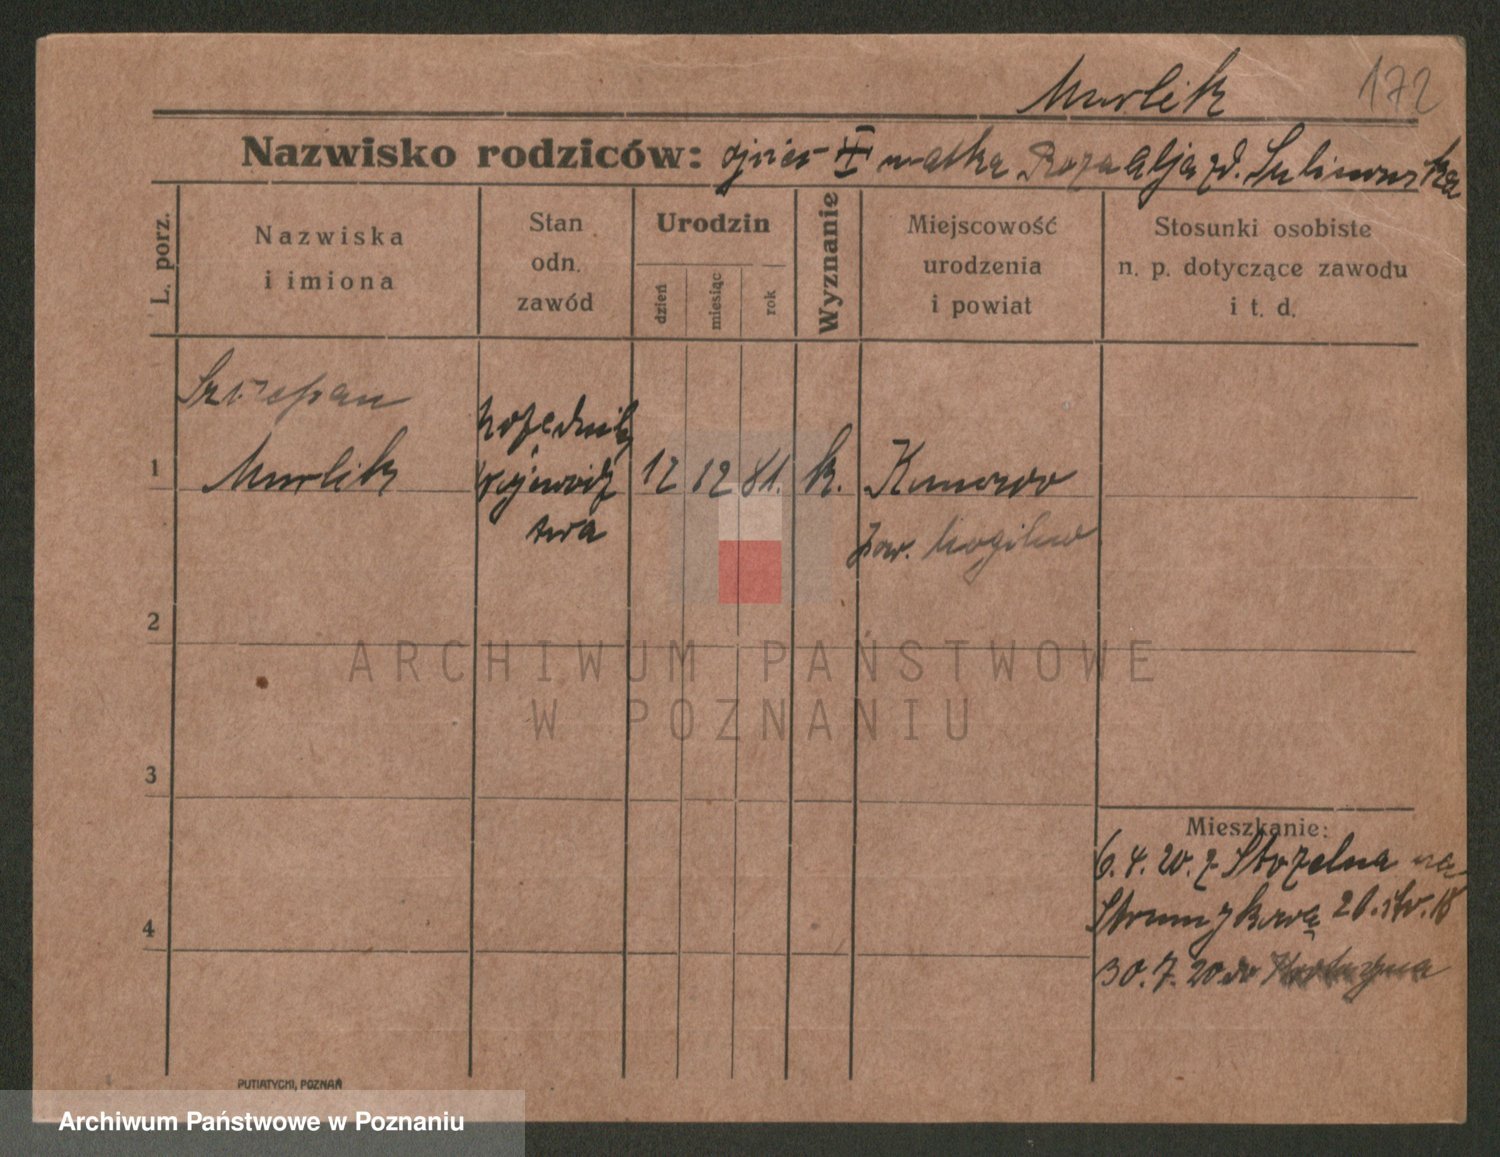 Murlik 172
Nazwisko rodziców: ojciec II matka Rozaalja zd. Sulinowska
L. porz.
Nazwiska
i imiona
Stan
odn.
zawód
Urodzin
dzień
miesiąc
rok
Wyznanie
Miejscowość
urodzenia
i powiat
Stosunki osobiste
n. p. dotyczące zawodu
i t. d.
Szczepan
1 Murlik
12 12 81. k. Kunowo
pow. Mogilno
2
3
4
Mieszkanie:
6.4.20. z Strzelna na
Strumykową 20. 18
30.7.20 do
ARCHIWUM PAŃSTWOWE
W POZNANIU
PUTIATYCKI, POZNAŃ
Archiwum Państwowe w Poznaniu